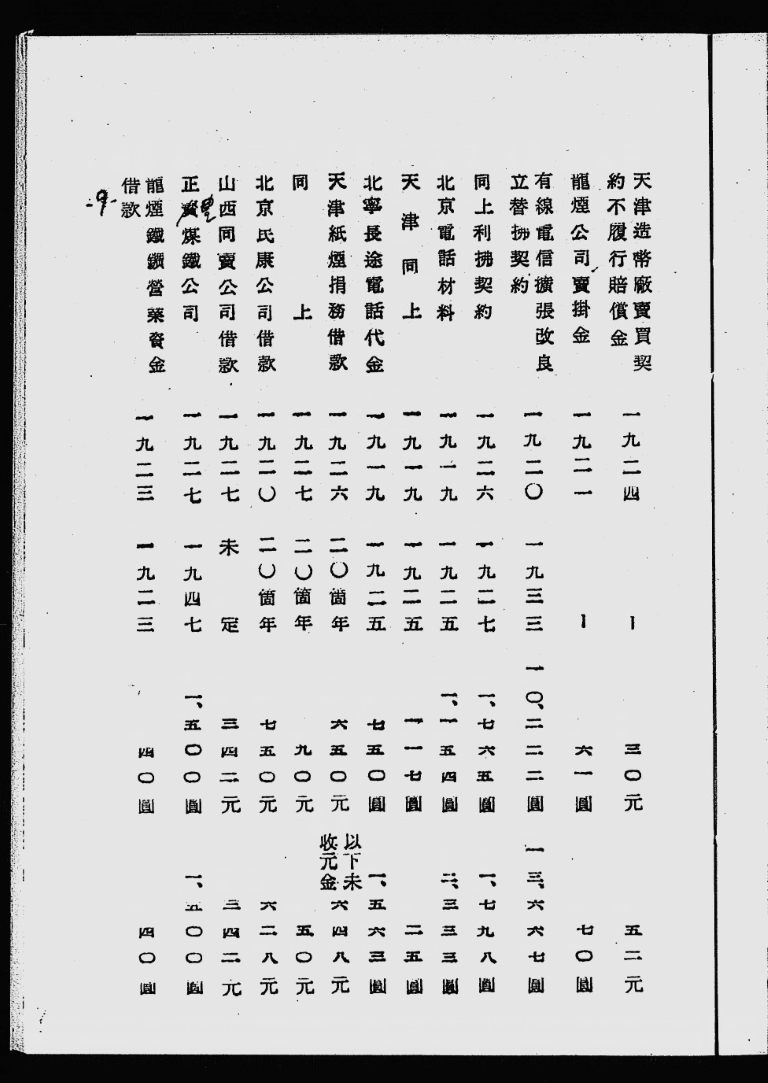 天津造幣廠賣買契
約不履行賠償金 一九二四 ー 三〇元 五二元
龍煙公司賣掛金 一九二一 ー 六一圓 七〇圓
有線電信擴張改良
立替拂契約 一九二〇 一九三三 一〇、二二二圓 一三、六六七圓
同上利拂契約 一九二六 一九二七 一、七六五圓 一、七九八圓
北京電話材料 一九一九 一九二五 一、一五四圓 二、三三三圓
天津同上 一九一九 一九二五 一一七圓 二五圓
北寧長途電話代金 一九一九 一九二五 七五〇圓 一、五六三圓
以下未
收元金
天津紙煙捐務借款 一九二六 二〇箇年 六五〇元 六四八元
同上 一九二七 二〇箇年 九〇元 五〇元
北京民康公司借款 一九二〇 二〇箇年 七五〇元 六二八元
山西同賣公司借款 一九二七 未定 三四二元 三四二元
正煤鐵公司 一九二七 一九四七 一、五〇〇圓 一、五〇〇圓
龍煙鐵鑛營業資金
借款 一九二三 一九二三 四〇圓 四〇圓
-9-